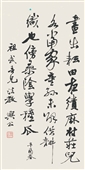 晝出耘田夜績麻村莊兒
女各當家童孫未解供耕
織也傍桑陰學種瓜
祖武吾兄法教